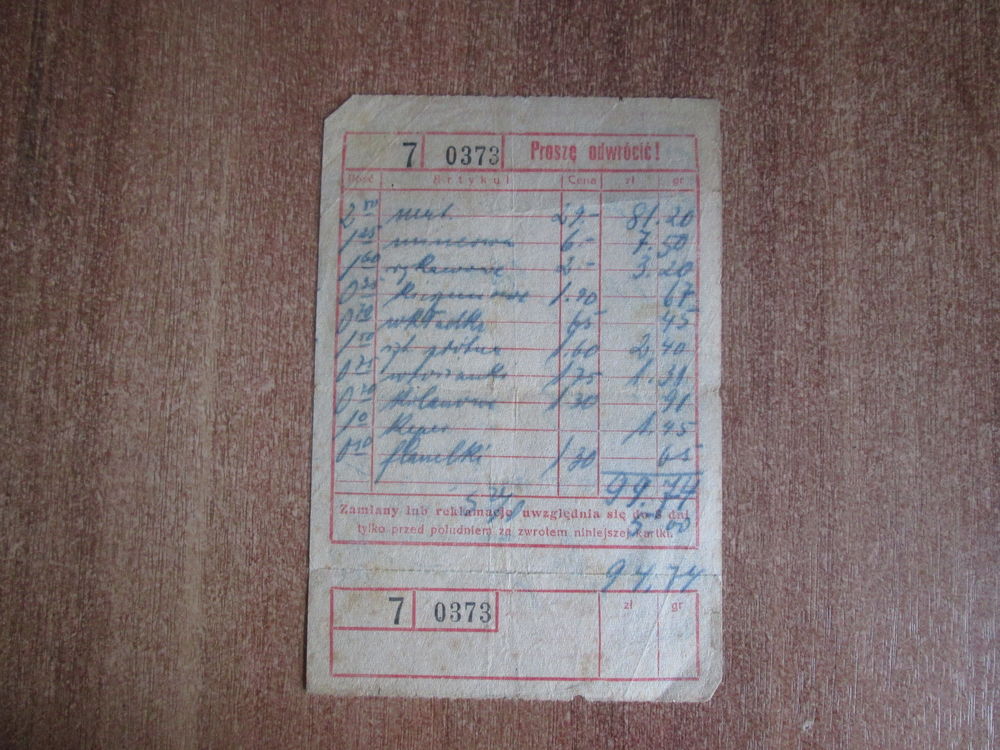 7 0373 Proszę odwrócić!
Ilość Artykuł Cena zł gr
2 80 29.- 81.20
1 25 6.- 7.50
1 60 rękawowe 2.- 3.20
0 35 1.90 67
0 70 wkładki 65 45
1 50 1.60 2.40
0 75 1.75 1.31
0 70 1.30 91
10 Keper 1.45
0 50 flanelki 1.30 65
99.74
Zamiany lub reklamacje uwzględnia się do 8 dni
tylko przed południem za zwrotem niniejszej kartki.
5 00
94.74
7 0373 zł gr